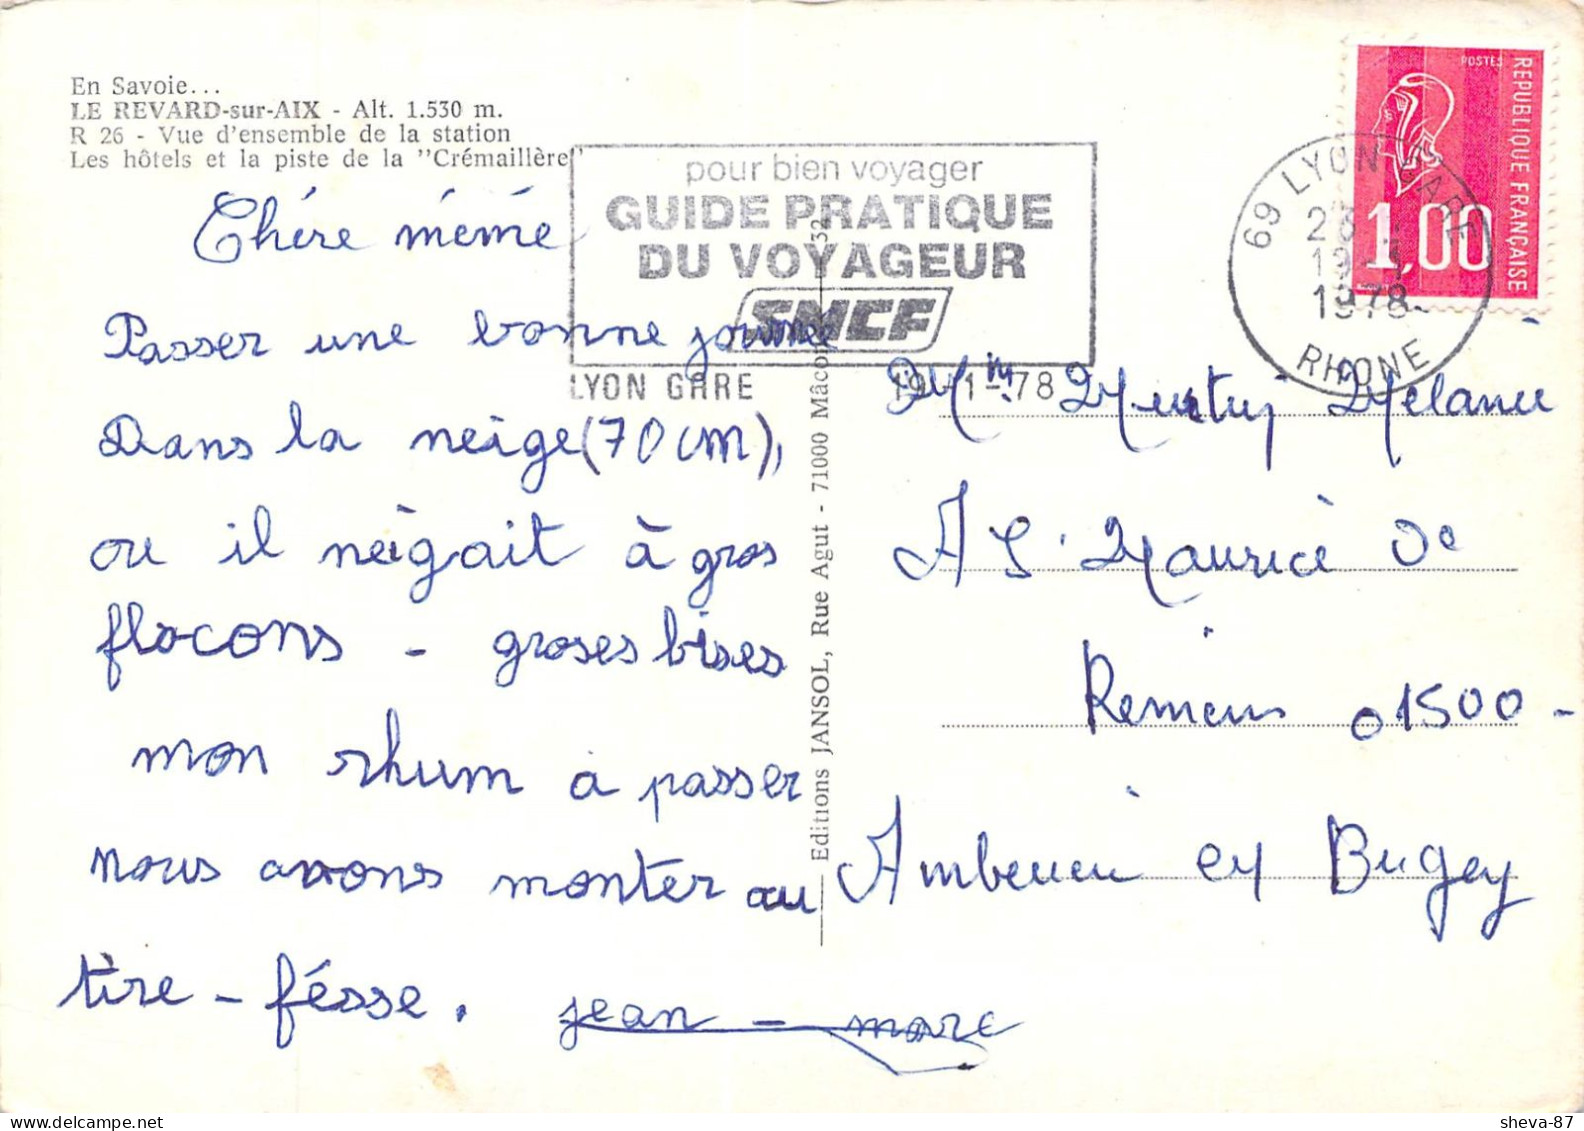 En Savoie...
LE REVARD-sur-AIX - Alt. 1.530 m.
R 26 - Vue d'ensemble de la station
Les hôtels et la piste de la "Crémaillère"
pour bien voyager
GUIDE PRATIQUE
DU VOYAGEUR
SNCF
LYON GARE 19-1-78
POSTES
REPUBLIQUE FRANÇAISE
1,00
69 LYON GARE
19-1
1978
RHONE
Chére mémé
Passer une bonne journée
Dans la neige (70 cm),
ou il neigait à gros
flocons - groses bises
mon rhum a passer
nous avons monter au
tire-fésse. jean-marc
Editions JANSOL, Rue Agut - 71000 Mâcon 32
Melanie
A S. Maurice De
Remens 01500-
Amberieu en Bugey
sheva-87